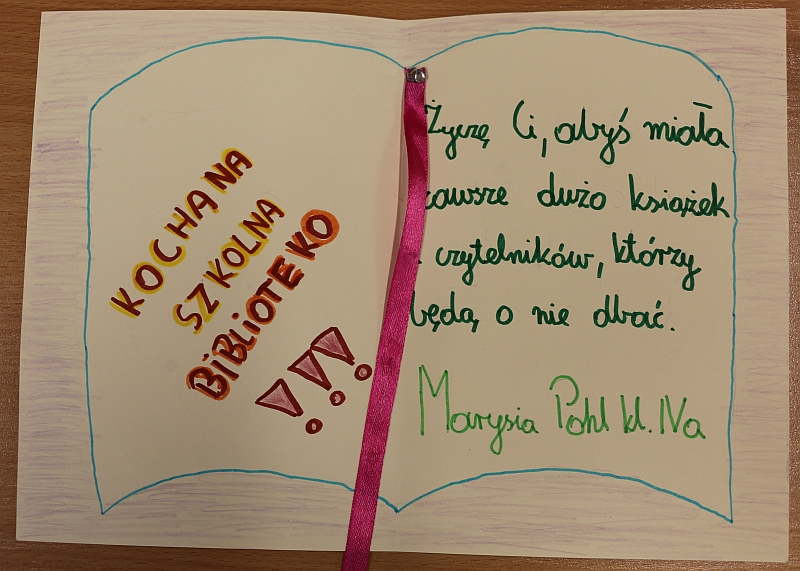 KOCHANA
SZKOLNA
BIBLIOTEKO
!!!
Życzę Ci, abyś miała
zawsze dużo książek
i czytelników, którzy
będą o nie dbać.
Marysia Pohl kl. IVa